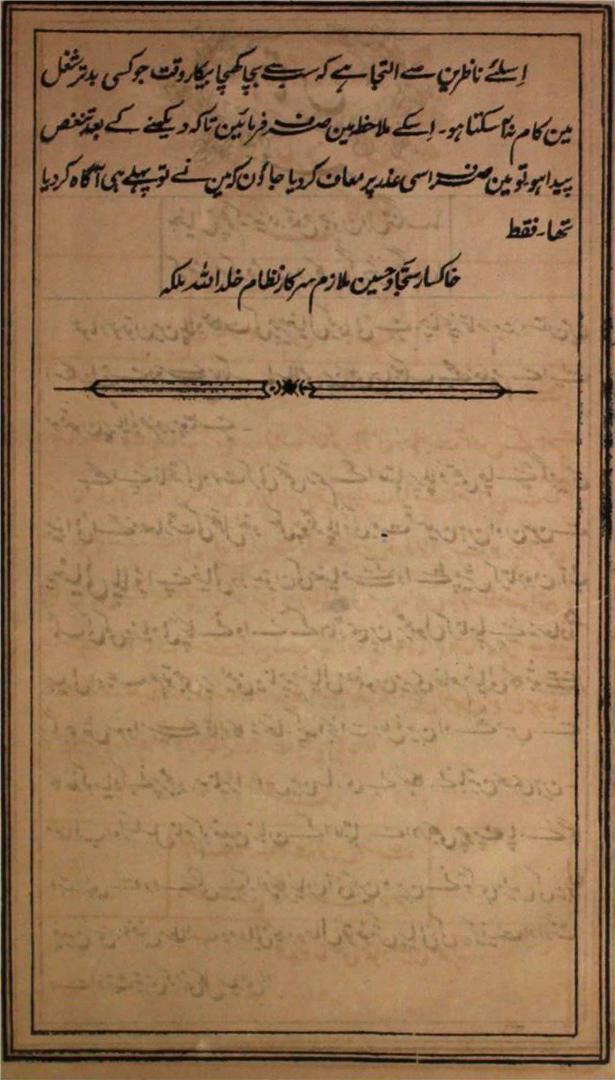 اسلئے ناظرین سے التجا ہے کہ سب سے بچا کھچا بیکار وقت جو کسی بدتر شغل
مین کام نہ آسکتا ہو۔ اسکے ملاحظہ مین صرف فرمائین تاکہ دیکھنے کے بعد تنغص
پیدا ہو تو مین صرف اسی عذر پر معاف کر دیا جاؤن کہ مین نے تو پہلے ہی آگاہ کر دیا
تھا۔ فقط
خاکسار سجاد حسین ملازم سرکار نظام خلد اللہ ملکہ